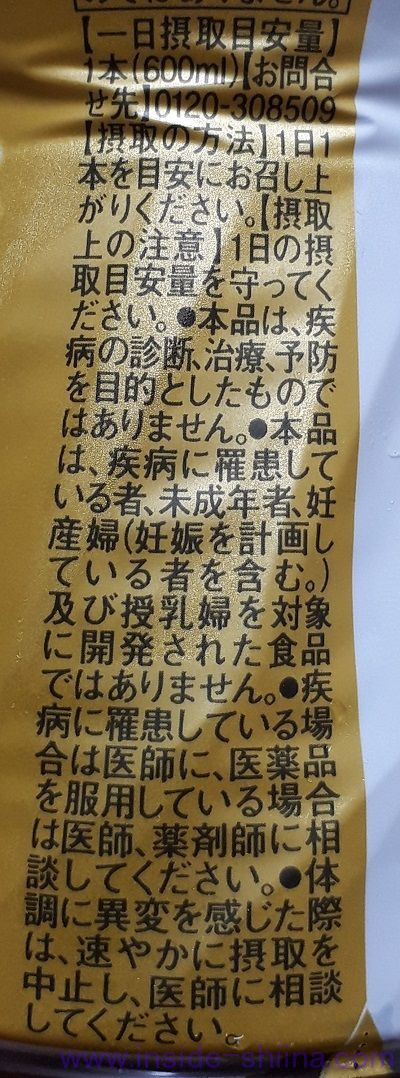 【一日摂取目安量】
1本(600ml)【お問合
せ先】0120-308509
【摂取の方法】1日1
本を目安にお召し上
がりください。【摂取
上の注意】1日の摂
取目安量を守ってく
ださい。●本品は、疾
病の診断、治療、予防
を目的としたもので
はありません。●本品
は、疾病に罹患して
いる者、未成年者、妊
産婦(妊娠を計画し
ている者を含む。)
及び授乳婦を対象
に開発された食品
ではありません。●疾
病に罹患している場
合は医師に、医薬品
を服用している場合
は医師、薬剤師に相
談してください。●体
調に異変を感じた際
は、速やかに摂取を
中止し、医師に相談
してください。
www.inside-shiina.com